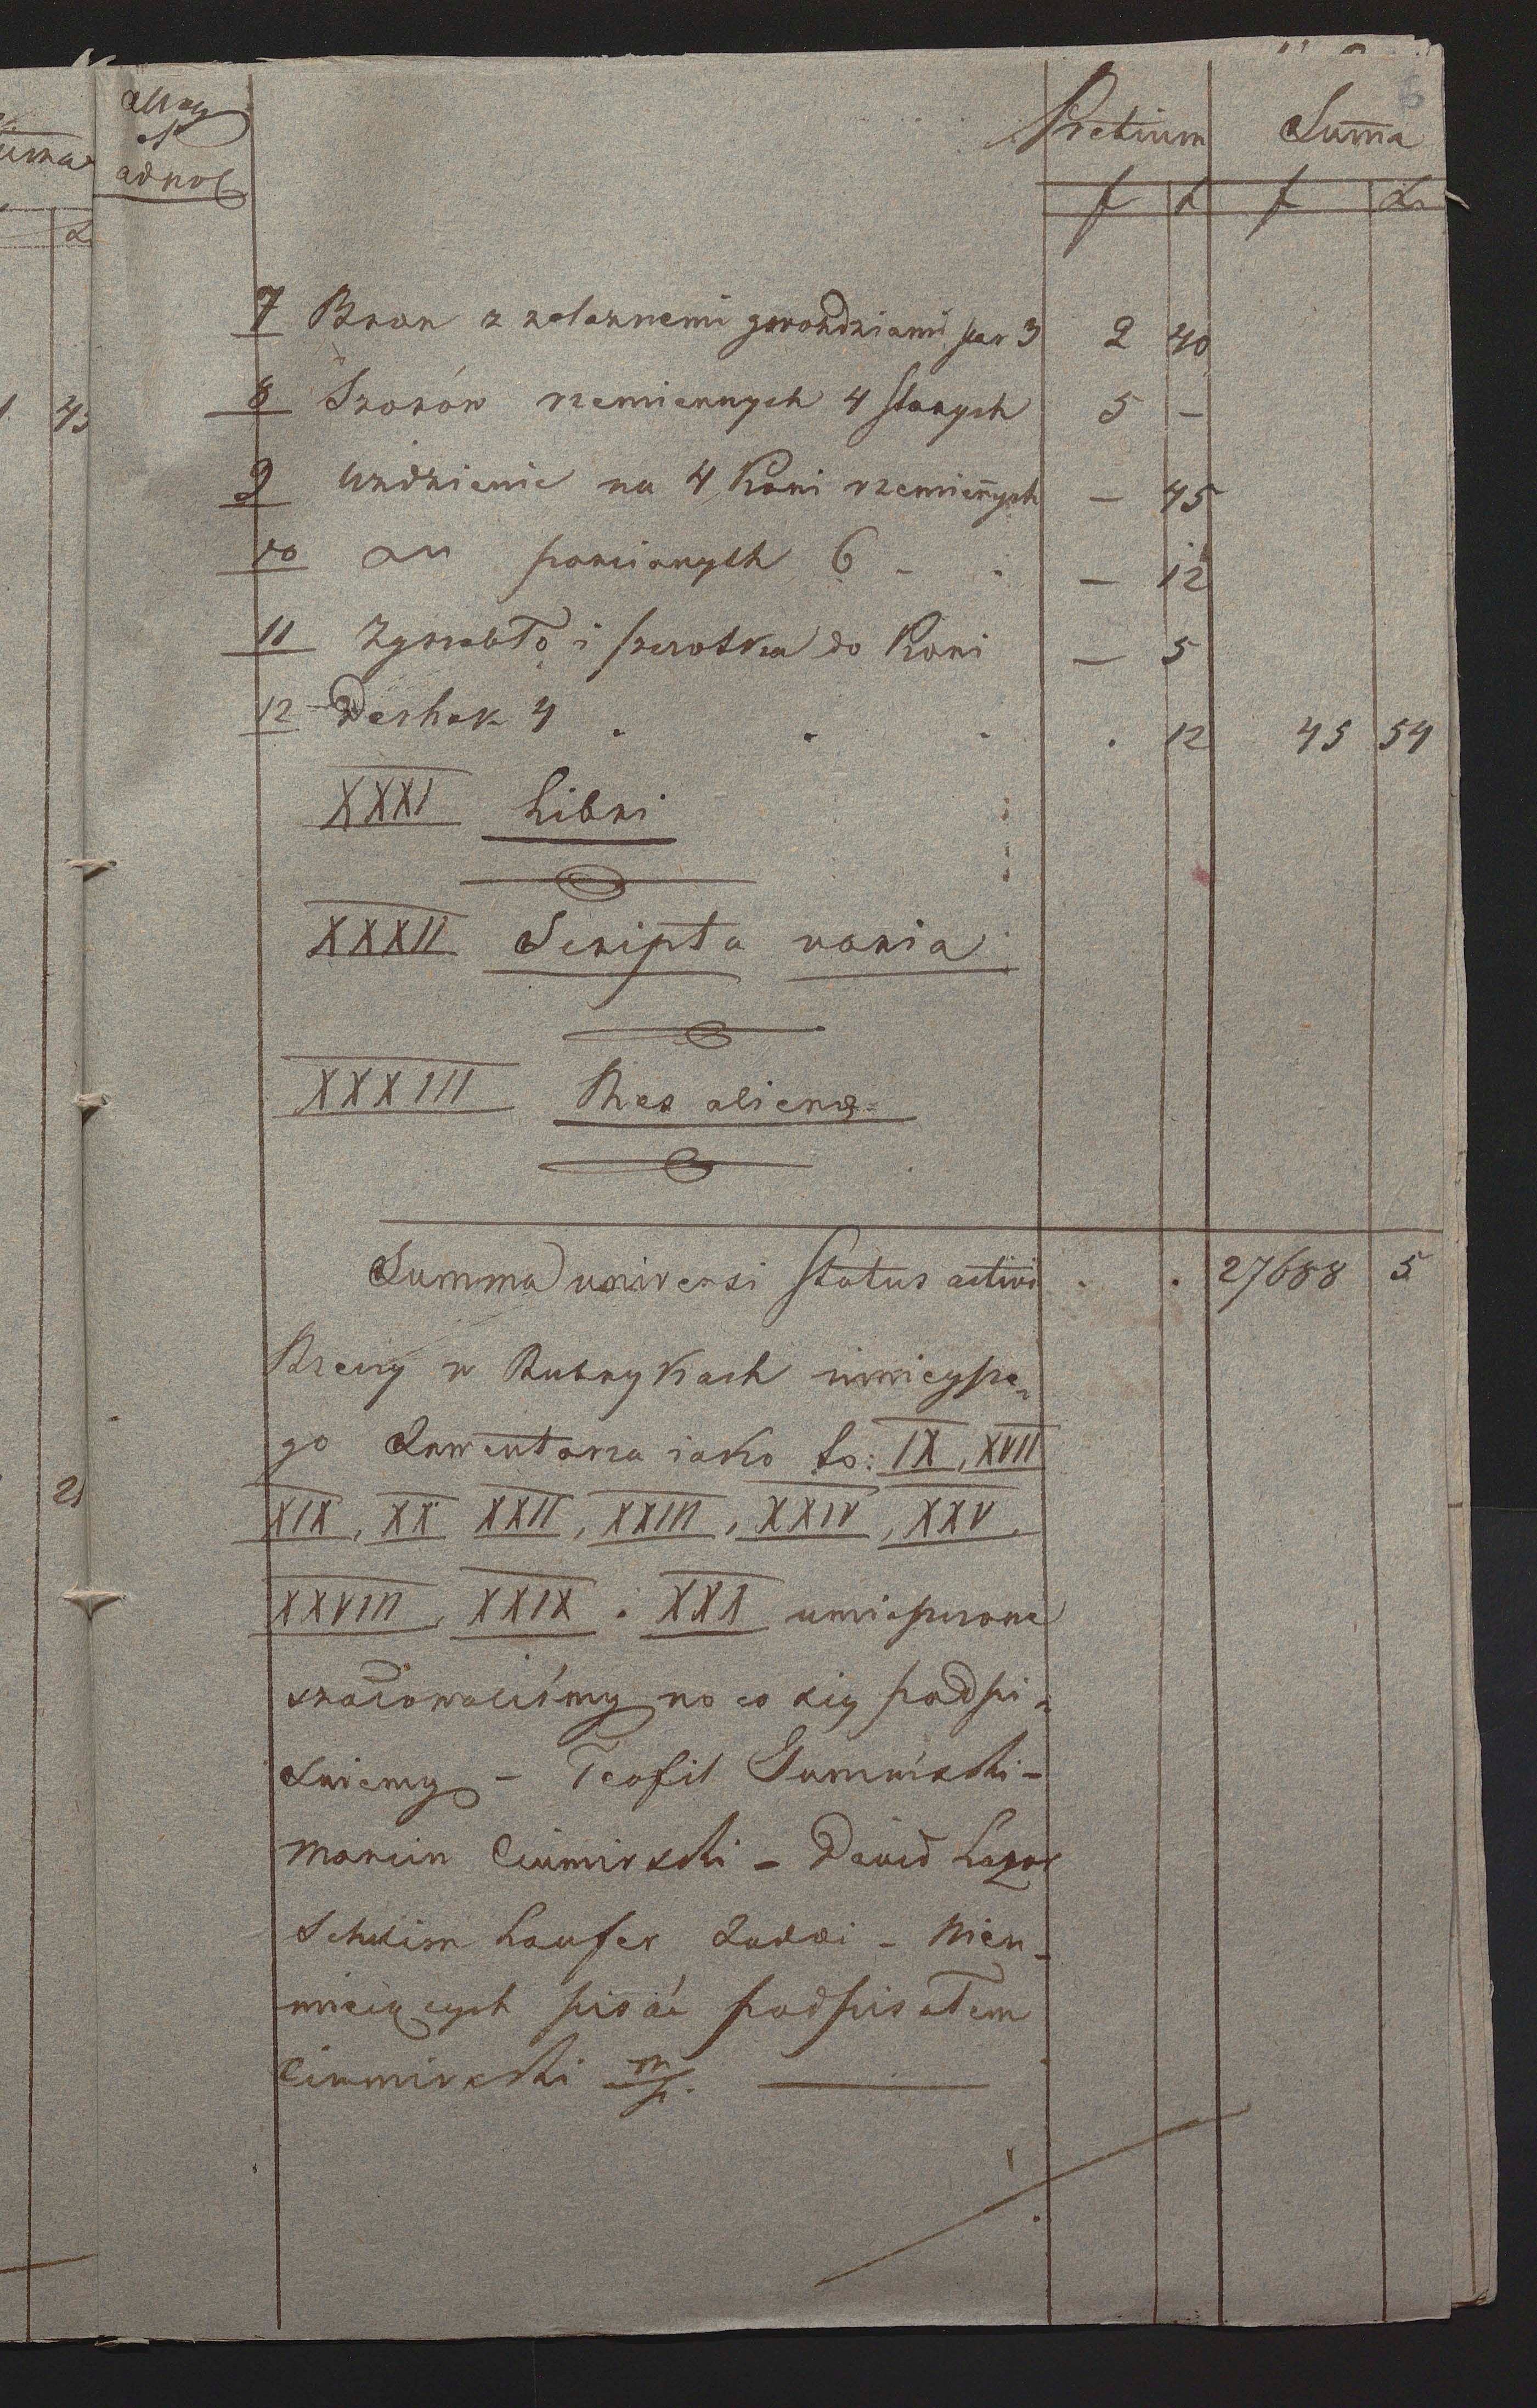 uma
Pretium Suma
f x f x
adnot
7 Bron z zelaznemi gwoździami par 3 2 40
8 Szorów rzemiennych 4 Starych 5 –
45
9 Uzdzienic na 4 Koni rzemieñych – 45
10 parcianych 6 – 12
11 Zgrzebło i szczotka do Koni – 5
12 Derhak 4 . . . . 12 45 54
XXXI Libri
XXXII Scripta varia
XXXIII Res alienæ
Summa universi Status activi . . 27688 5
Rzeczy w Rubrykach ninieysze-
go Inwentarza iako to: IX, XVII
XIX, XX XXII, XXIII, XXIV, XXV,
21
XXVIII, XXIX. XXX umieszczone
szacowaliśmy na co się podpi-
suiemy – Teofil Gumiński –
Marcin Ciumirski – David
Schulim Laufer – Nieu-
mieiących pisać podpisałem
Ciumirski m/p.